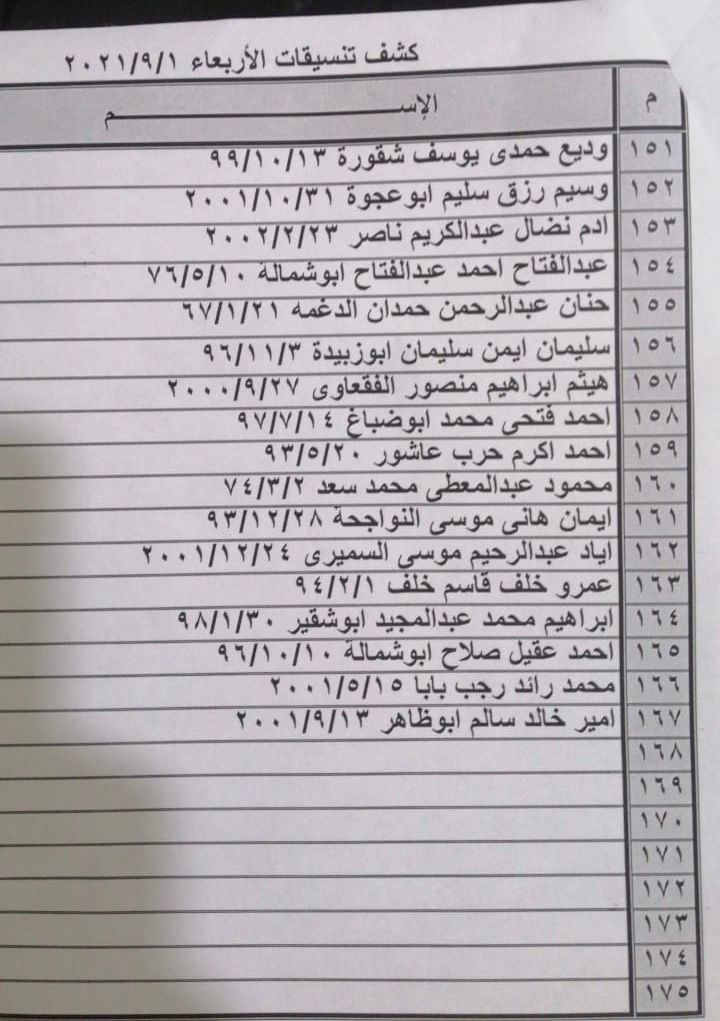 كشف تنسيقات الأربعاء ٢٠٢١/٩/١
م الإســـــــــــــــــــــم
١٥١ وديع حمدى يوسف شقورة ٩٩/١٠/١٣
١٥٢ وسيم رزق سليم ابوعجوة ٢٠٠١/١٠/٣١
١٥٣ ادم نضال عبدالكريم ناصر ٢٠٠٢/٢/٢٣
١٥٤ عبدالفتاح احمد عبدالفتاح ابوشمالة ٧٦/٥/١٠
١٥٥ حنان عبدالرحمن حمدان الدغمه ٦٧/١/٢١
١٥٦ سليمان ايمن سليمان ابوزبيدة ٩٦/١١/٣
١٥٧ هيثم ابراهيم منصور الفقعاوى ٢٠٠٠/٩/٢٧
١٥٨ احمد فتحى محمد ابوضباغ ٩٧/٧/١٤
١٥٩ احمد اكرم حرب عاشور ٩٣/٥/٢٠
١٦٠ محمود عبدالمعطى محمد سعد ٧٤/٣/٢
١٦١ ايمان هانى موسى النواجحة ٩٣/١٢/٢٨
١٦٢ اياد عبدالرحيم موسى السميرى ٢٠٠١/١٢/٢٤
١٦٣ عمرو خلف قاسم خلف ٩٤/٢/١
١٦٤ ابراهيم محمد عبدالمجيد ابوشقير ٩٨/١/٣٠
١٦٥ احمد عقيل صلاح ابوشمالة ٩٦/١٠/١٠
١٦٦ محمد رائد رجب بابا ٢٠٠١/٥/١٥
١٦٧ امير خالد سالم ابوظاهر ٢٠٠١/٩/١٣
١٦٨
١٦٩
١٧٠
١٧١
١٧٢
١٧٣
١٧٤
١٧٥